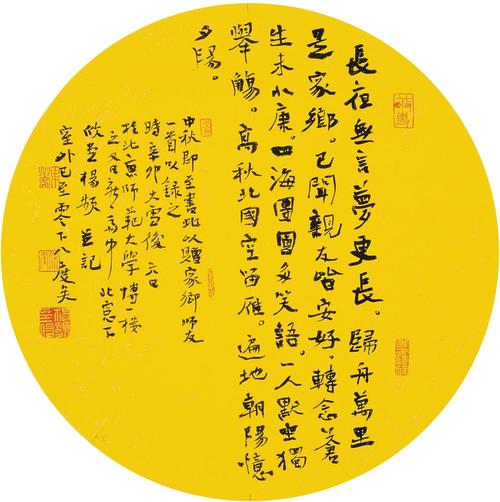 長夜無言夢更長。歸舟萬里
是家鄉。已聞親友皆安好,轉念蒼
生未小康。四海團圓多笑語。一人默坐獨
舉觴。高秋北國空留雁。遍地朝陽憶
夕陽。
中秋即至書此以贈家鄉師友
一首以錄之
時辛卯大雪後六日
於北京師範大學博一樓
之又日新 北窗下
楊頻並記
室外已至零下八度矣